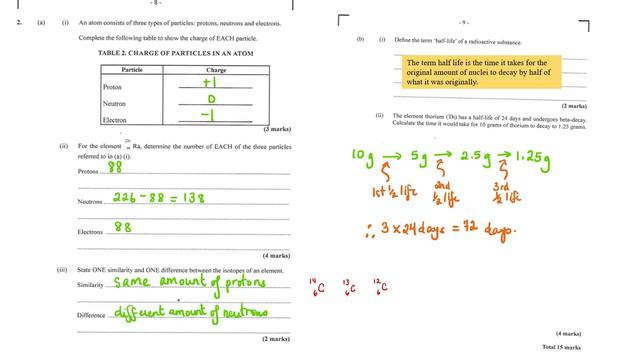 - 8 -
2. (a) (i) An atom consists of three types of particles: protons, neutrons and electrons.
Complete the following table to show the charge of EACH particle.
TABLE 2. CHARGE OF PARTICLES IN AN ATOM
Particle Charge
Proton +1
Neutron 0
Electron -1
(3 marks)
(ii) For the element 226 88 Ra, determine the number of EACH of the three particles
referred to in (a) (i).
Protons 88
Neutrons 226 - 88 = 138
Electrons 88
(4 marks)
(iii) State ONE similarity and ONE difference between the isotopes of an element.
Similarity same amount of protons
Difference different amount of neutrons
(2 marks)
- 9 -
(b) (i) Define the term 'half-life' of a radioactive substance.
The term half life is the time it takes for the
original amount of nuclei to decay by half of
what it was originally.
(2 marks)
(ii) The element thorium (Th) has a half-life of 24 days and undergoes beta-decay.
Calculate the time it would take for 10 grams of thorium to decay to 1.25 grams.
10g → 5g → 2.5g → 1.25g
1st 1/2 life 2nd 1/2 life 3rd 1/2 life
∴ 3 × 24 days = 72 days.
14 6 C 13 6 C 12 6 C
(4 marks)
Total 15 marks